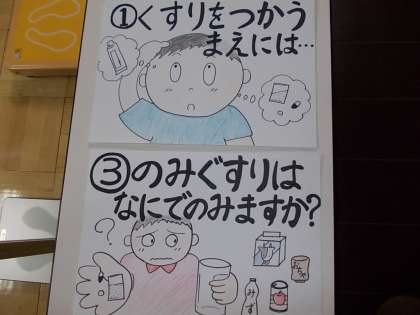 ①くすりをつかう
まえには…
③のみぐすりは
なにでのみますか?
?
おちゃ
みず